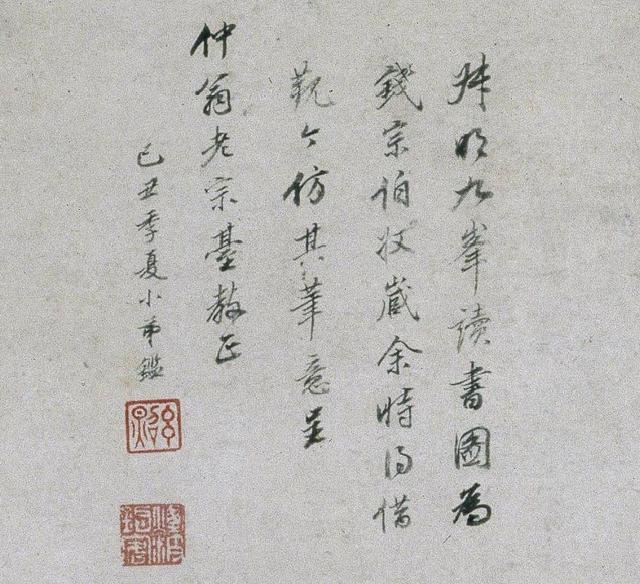 叔明九峯讀書圖為
錢宗伯收藏余時得借
觀今仿其筆意呈
仲翁老宗臺教正
己丑季夏小弟鑑